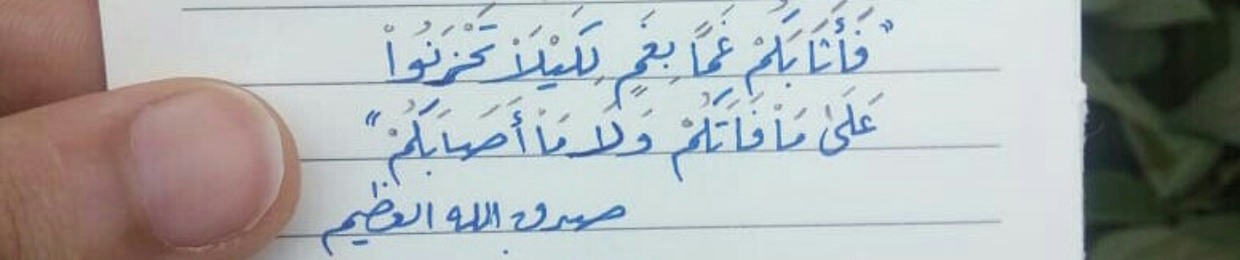 "فَأَثَابَكُمْ غَمًّا بِغَمٍّ لِكَيْلَا تَحْزَنُوا
عَلَىٰ مَا فَاتَكُمْ وَلَا مَا أَصَابَكُمْ"
صدق الله العظيم